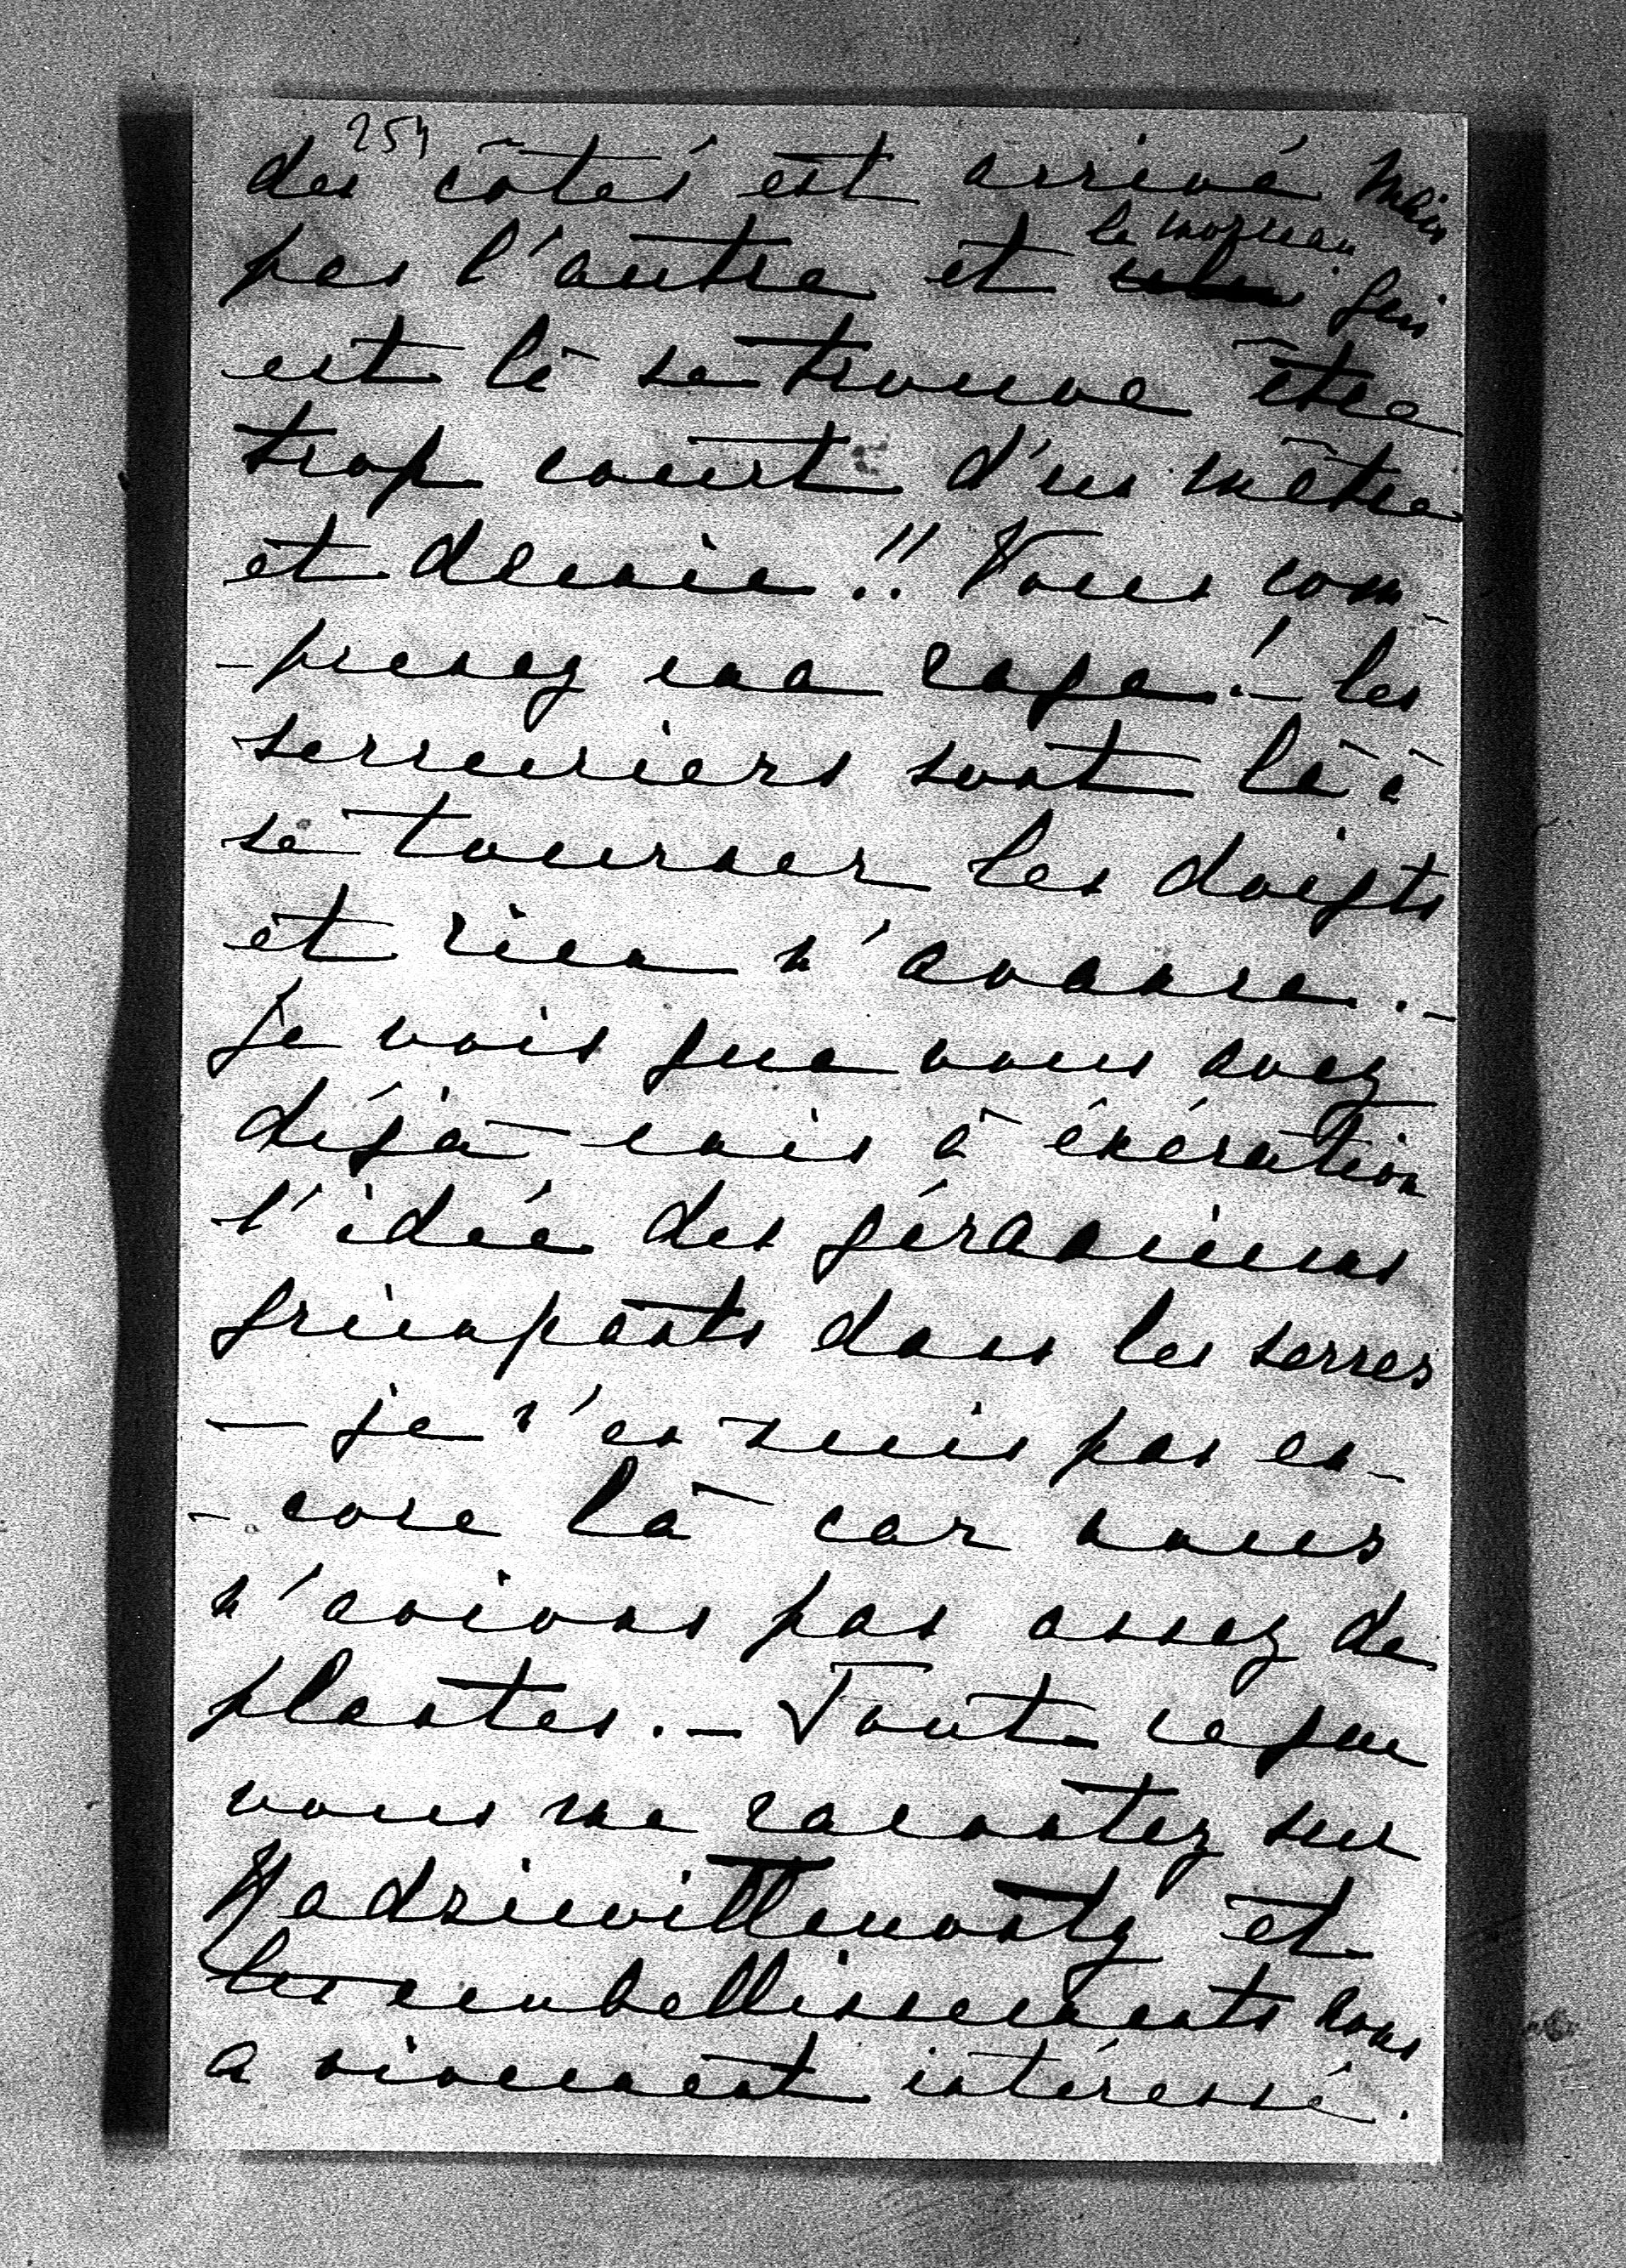 254
des côtés est arrivé mais
pas l'autre et le morceau qui
est là se trouve être
trop court d'un mètre
et demie!! Vous com-
-prenez ma rage! – les
serruriers sont là à
se tourner les doigts
et rien n'avance. –
Je vois que vous avez
déjà mis à exécution
l'idée des géraniums
grimpants dans les serres
– je n'en suis pas en-
-core là car nous
n'avions pas assez de
plantes. – Tout ce que
vous me racontez sur
et
les embellissements nous
a vivement intéressé.